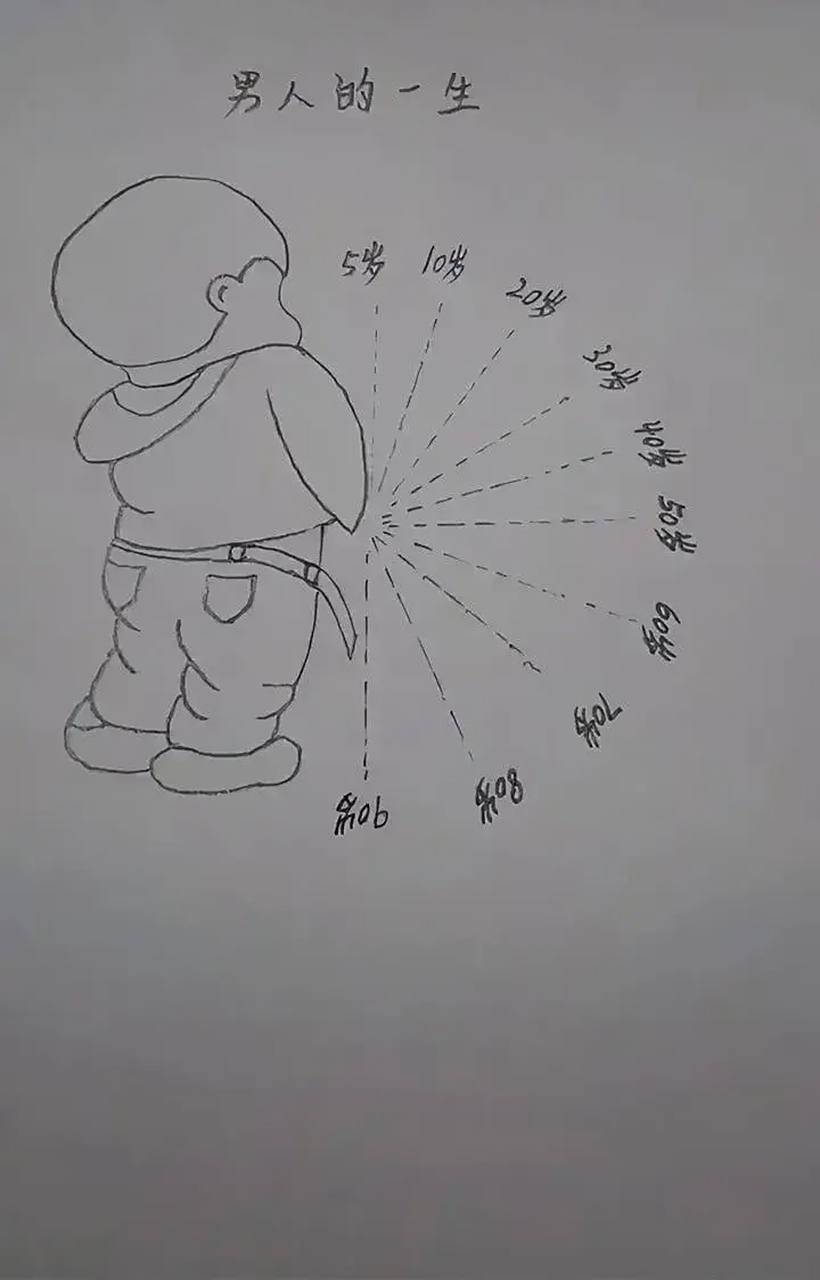 男人的一生
5岁
10岁
20岁
30岁
40岁
50岁
60岁
70岁
80岁
90岁